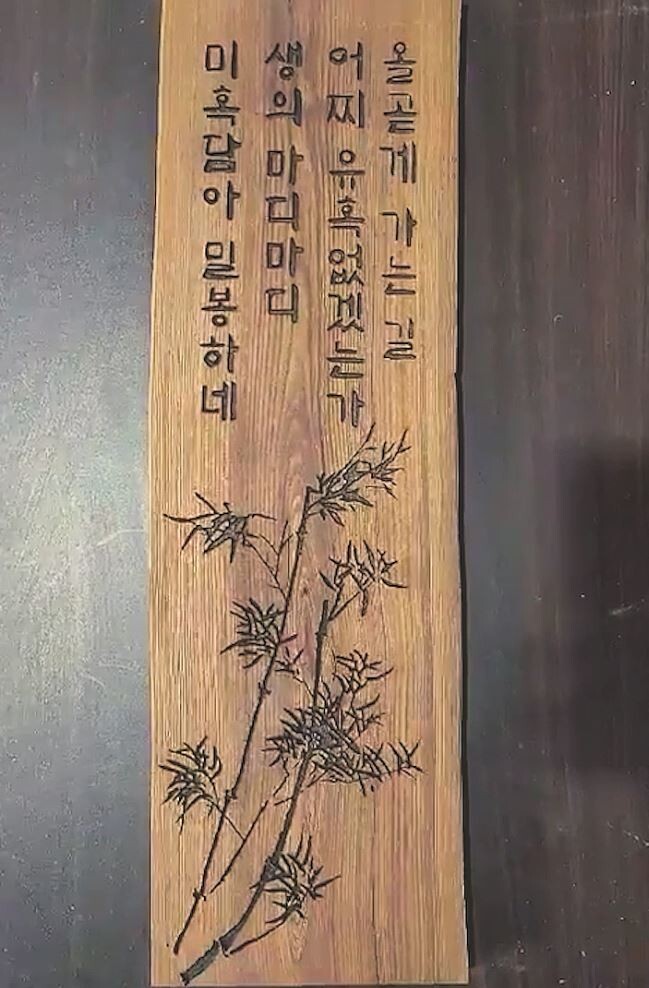 올곧게 가는 길
어찌 유혹없겠는가
생의 마디마디
미혹담아 밀봉하네